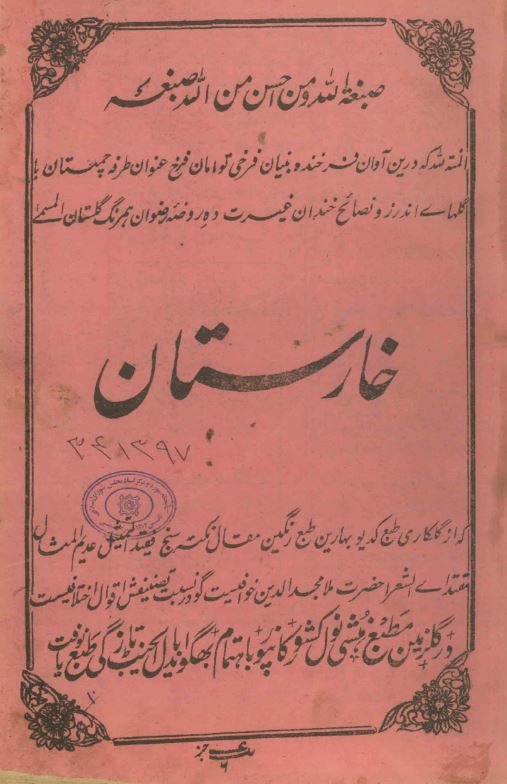 صبغة الله ومن احسن من الله صبغه
المنة لله که درین آوان فرخنده بنیان فرخی توامان فرخ عنوان طرفه چمنستان با
گلهاے اندرز و نصائح خندان غیرت ده روضهٔ رضوان همرنگ گلستان المسمے
خارستان
۳۴۱۳۹۷
که از گلکاری طبع کدیو بهارین طبع رنگین مقال نکته سنج فقید المثیل عدیم المثال
مقتداے الشعرا حضرت ملا مجدالدین خوافیست گو در نسبت تصنیفش اقوال اختلافیست
در گلزمین مطبع منشی نول کشور کانپور باهتمام بهگواندیال
تازگی طبع یافت
جز